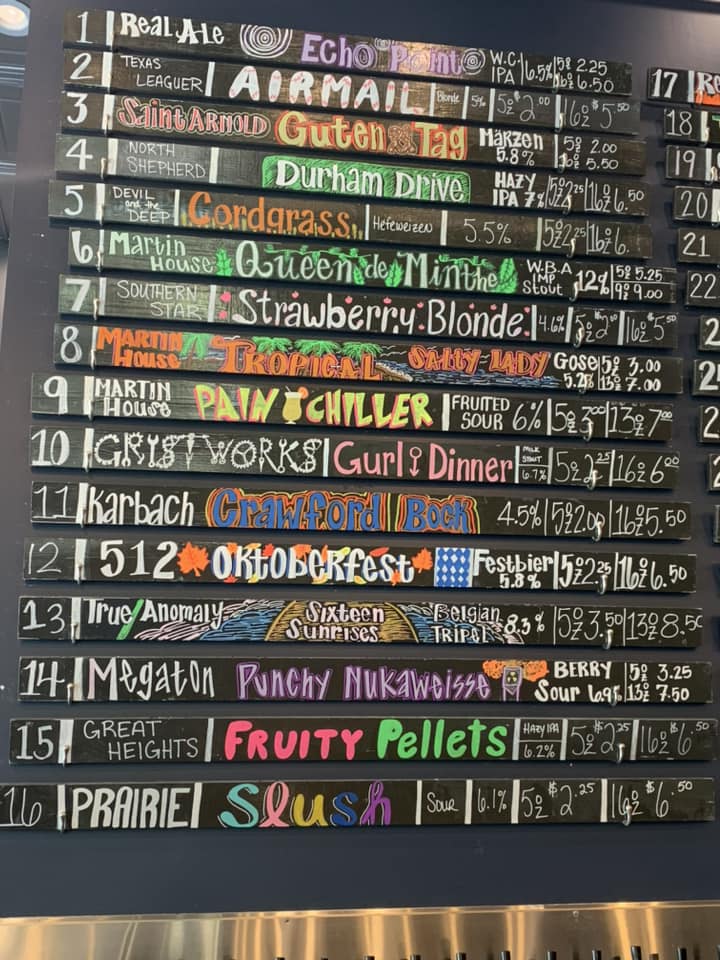 1 Real Ale Echo Point W.C. IPA 6.5% 5oz 2.25 16oz 6.50
2 TEXAS LEAGUER AIRMAIL Blonde 5% 5oz $2.00 16oz $5.50
3 Saint Arnold Guten Tag Märzen 5.8% 5oz 2.00 16oz 5.50
4 NORTH SHEPHERD Durham Drive HAZY IPA 7% 5oz 2.25 16oz 6.50
5 DEVIL and the DEEP Cordgrass Hefeweizen 5.5% 5oz 2.25 16oz 6.
6 Martin House Queen de Minthe W.B.A IMP Stout 12% 5oz 5.25 9oz 9.00
7 SOUTHERN STAR Strawberry Blonde 4.6% 5oz $2.00 16oz $5.50
8 MARTIN House TROPICAL SALTY LADY Gose 5.2% 5oz 3.00 13oz 7.00
9 MARTIN House PAIN CHILLER FRUITED SOUR 6% 5oz 3.00 13oz 7.00
10 GRISTWORKS Gurl Dinner MILK STOUT 6.7% 5oz 2.25 16oz 6.00
11 Karbach Crawford Bock 4.5% 5oz 2.00 16oz 5.50
12 512 OKTOBERFEST Festbier 5.8% 5oz 2.25 16oz 6.50
13 True/Anomaly Sixteen Sunrises Belgian TRIPEL 8.3% 5oz 3.50 13oz 8.50
14 Megaton Punchy Nukaweisse BERRY Sour 6.9% 5oz 3.25 13oz 7.50
15 GREAT HEIGHTS FRUITY Pellets HAZY IPA 6.2% 5oz $2.25 16oz $6.50
16 PRAIRIE Slush Sour 6.1% 5oz $2.25 16oz $6.50
17 Re
18
19
20
21
22